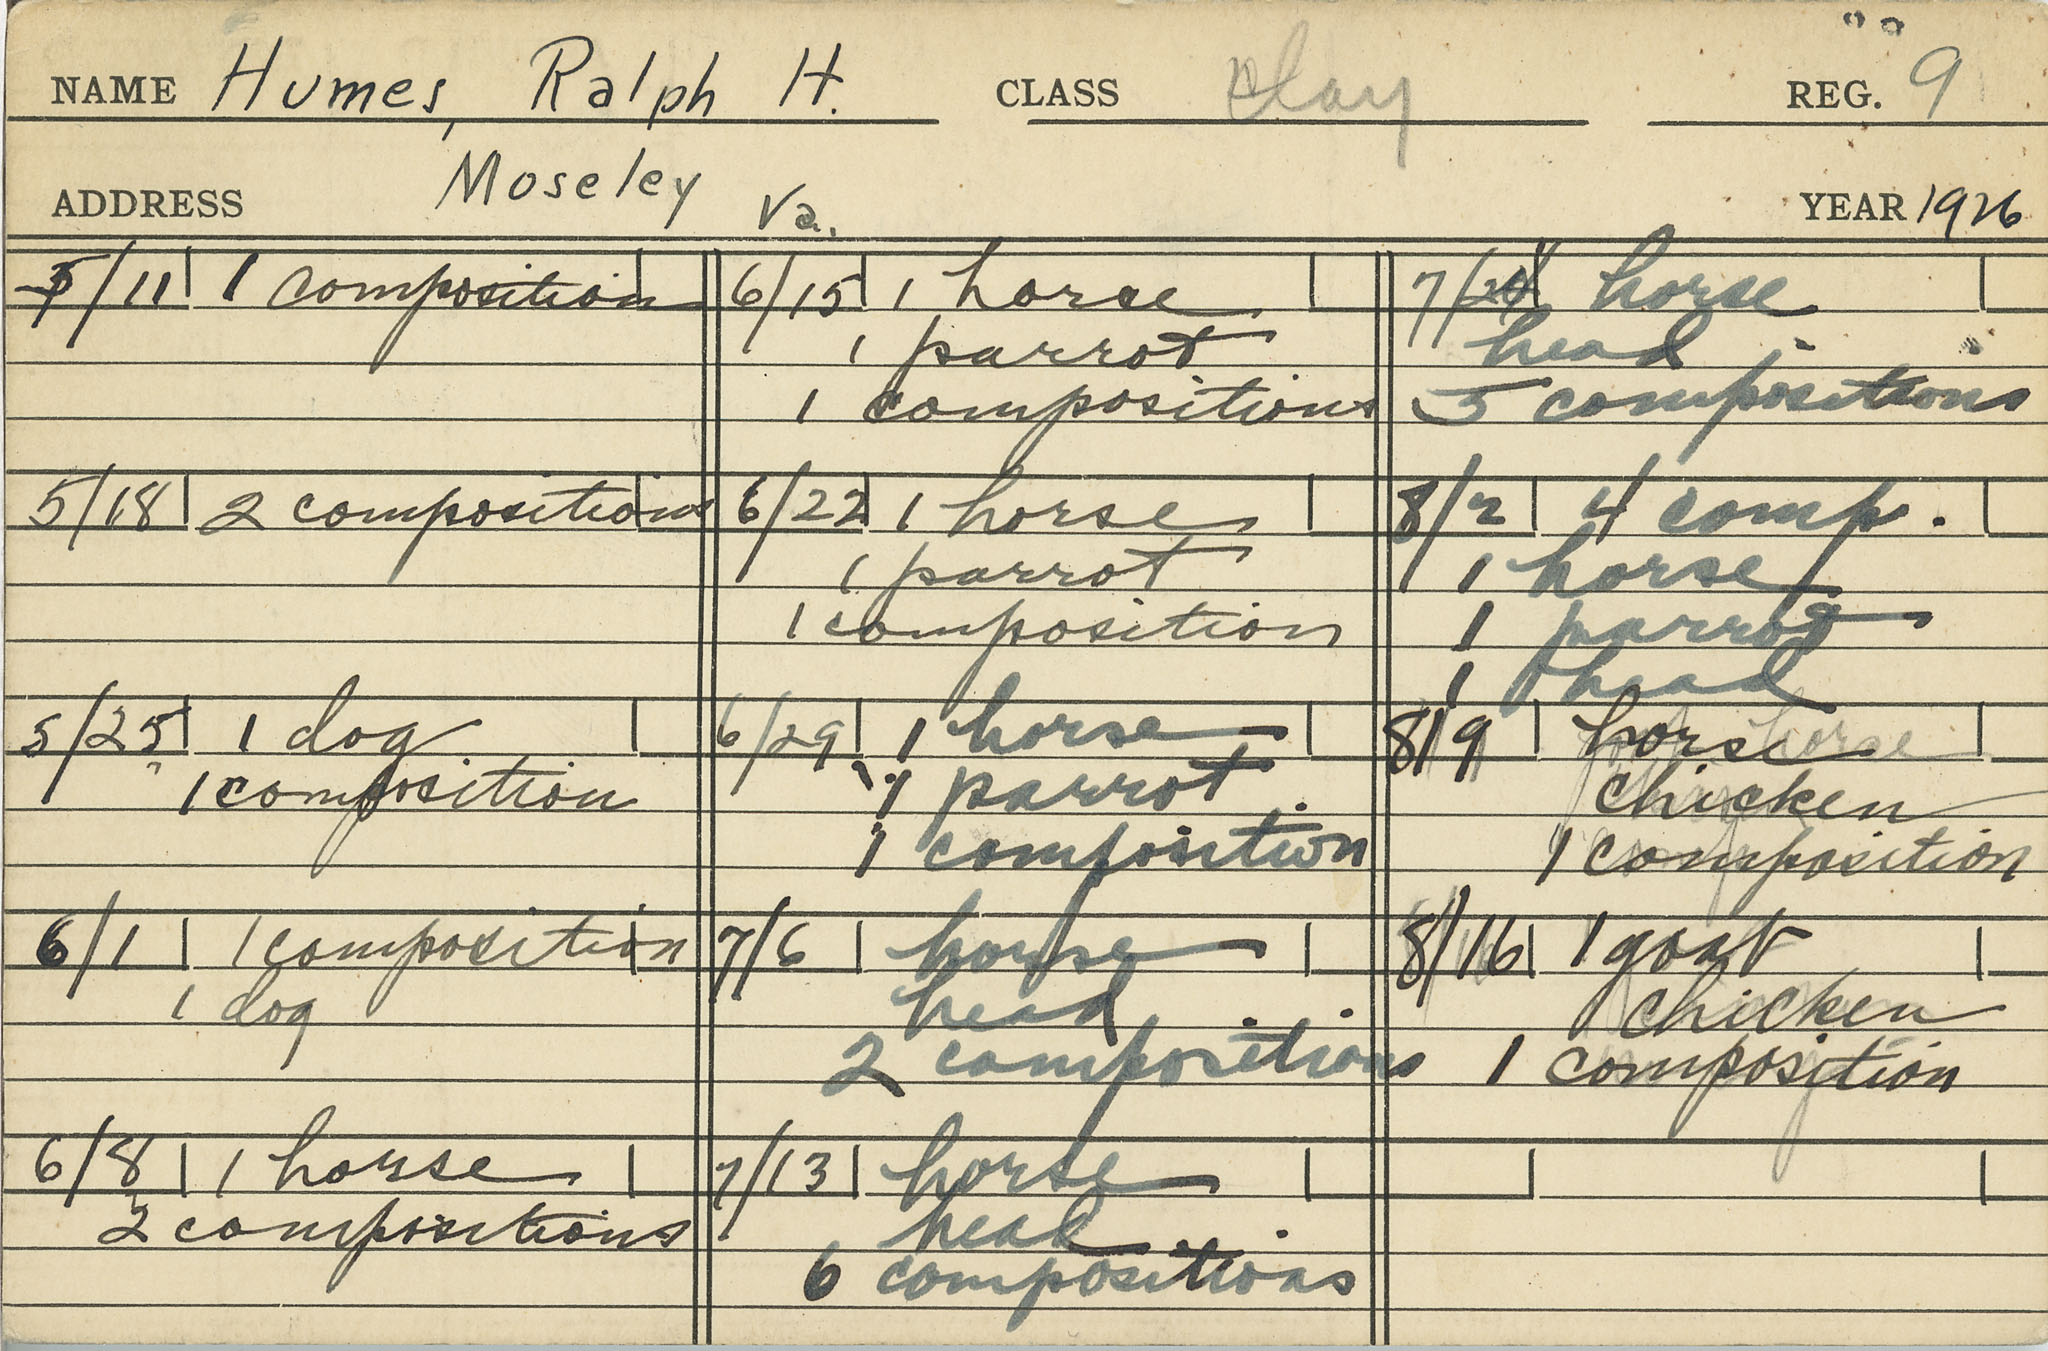 NAME Humes, Ralph H. CLASS Clay REG. 9
ADDRESS Moseley Va. YEAR 1926
5/11 1 composition
5/18 2 compositions
5/25 1 dog
1 composition
6/1 1 composition
1 dog
6/8 1 horse
2 compositions
6/15 1 horse
1 parrot
1 compositions
6/22 1 horse
1 parrot
1 composition
6/29 1 horse
1 parrot
1 composition
7/6 horse
head
2 compositions
7/13 horse
head
6 compositions
7/ horse
head
5 compositions
8/2 4 comp.
1 horse
1 parrot
1 head
8/9 horse
chicken
1 composition
8/16 1 goat
chicken
1 composition